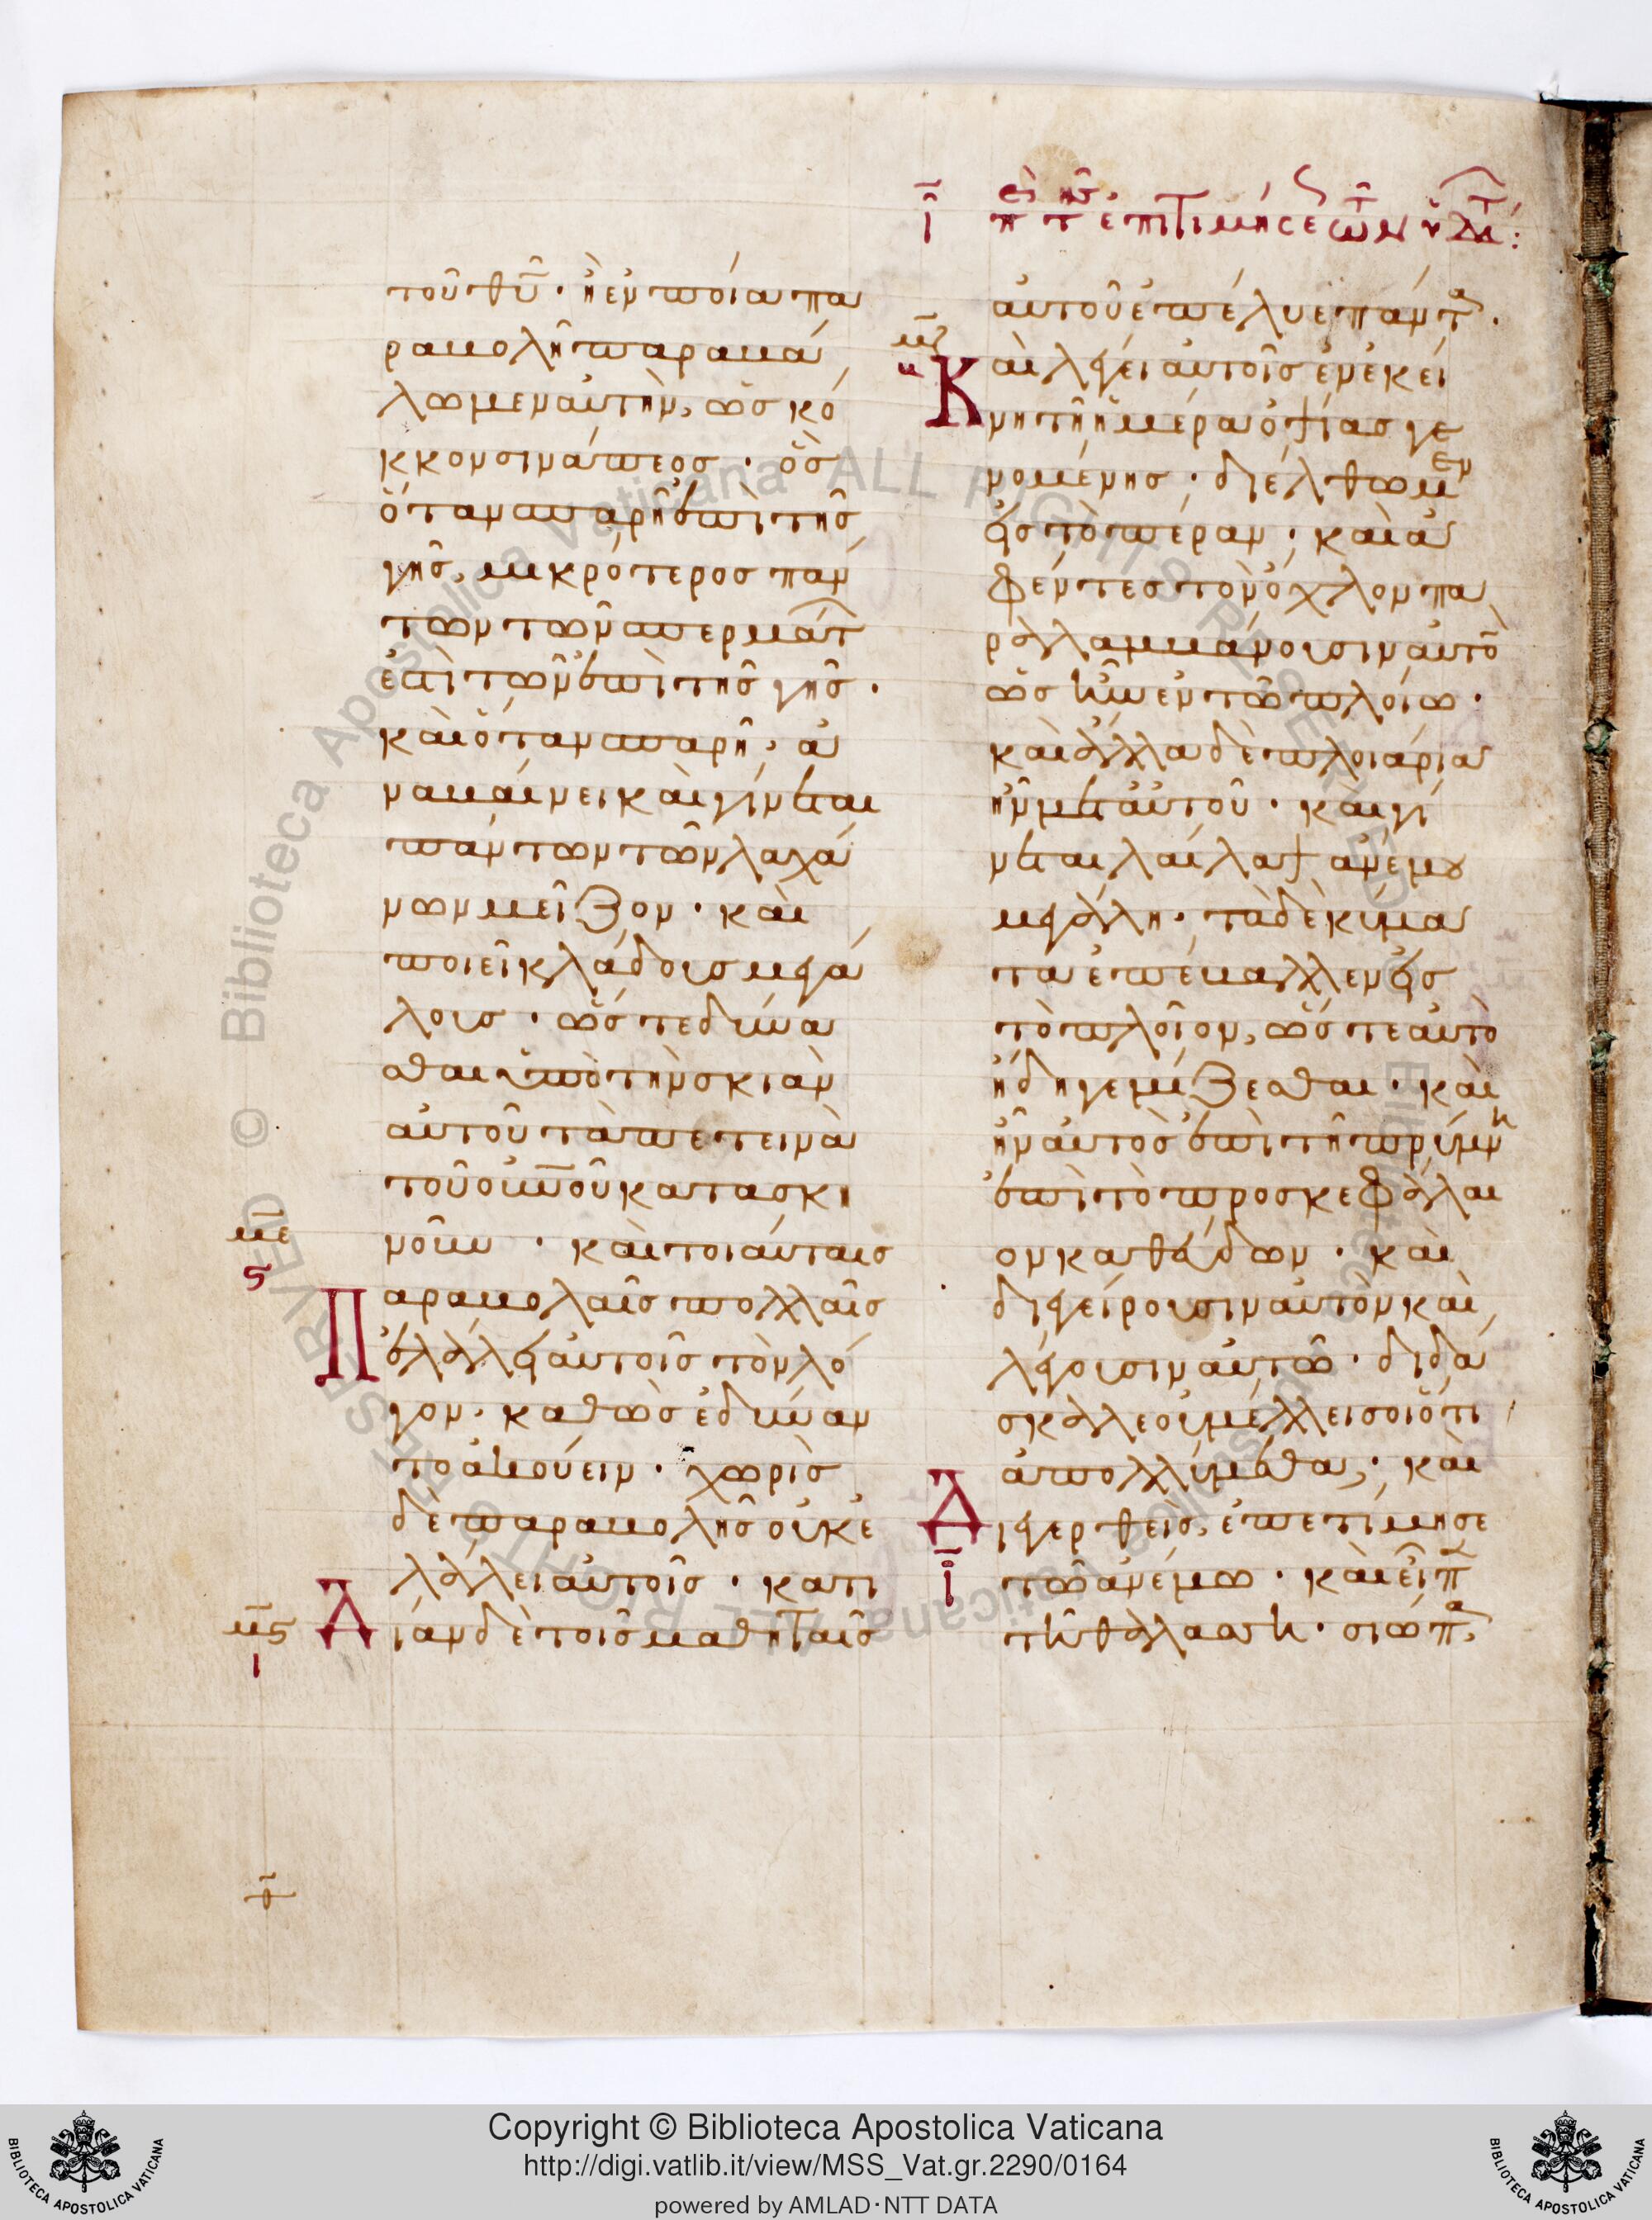 ῑ
π τ ἐπιτιμήσε τῶν ὑδτ:
τοῦ θ̅υ̅· ἢ ἐν ποία πα
ραβολῆ παραβά
λωμεν αὐτήν, ὡς κό
κκον σινάπεος· ὃς
ὅταν σπαρῆ ἐπὶ τῆς
γῆς, μικρότερος πάν
των τῶν σπερμάτ
ἐστὶ τῶν ἐπὶ τῆς γῆς·
καὶ ὅταν σπαρῆ, ἀ
ναβαίνει καὶ γίνεται
πάντων τῶν λαχά
νων μεῖζον· καὶ
ποιεῖ κλάδους μεγά
λους· ὥστε δύνα
σθαι ὑπὸ τὴν σκιὰν
αὐτοῦ τὰ πετεινὰ
τοῦ ο̅υ̅ν̅οῦ κατασκη
νοῦν· καὶ τοιαύταις
μ̅ε̅
ς
Παραβολαῖς πολλαῖς
ἐλάλει αὐτοῖς τὸν λό
γον· καθὼς ἐδύναν
το ἀκούειν· χωρὶς
δὲ παραβολῆς οὐκ ἐ
λάλει αὐτοῖς· κατι
μ̅ς̅
ι
Δίαν δὲ τοῖς μαθηταῖς
αὐτοῦ ἐπέλυε πάντα·
μ̅ζ̅
η
Καὶ λέγει αὐτοῖς ἐν ἐκεί
νη τῆ ἡμέρα ὀψίας γε
νομένης· διέλθωμεν
εἰς τὸ πέραν· καὶ ἀ
φέντες τὸν ὄχλον πα
ραλαμβάνουσιν αὐτὸ
ὡς ἦν ἐν τῶ πλοίω·
καὶ ἄλλα δὲ πλοιάρια
ἦν μετ' αὐτοῦ· καὶ γί
νεται λαίλαψ ἀνέμου
μεγάλη· τὰ δὲ κύμα
τα ἐπέβαλλεν εἰς
τὸ πλοῖον, ὥστε αὐτὸ
ἤδη γεμίζεσθαι· καὶ
ἦν αὐτὸς ἐπὶ τῆ πρύμνη
ἐπὶ τὸ προσκεφάλαι
ον καθεύδων· καὶ
διεγείρουσιν αὐτὸν καὶ
λέγουσιν αὐτῶ· διδά
σκαλε οὐ μέλλει σοι ὅτι
ἀπολλύμεθα; καὶ
Διεγερθεὶς, ἐπετίμησε
ῑ
τῶ ἀνέμω· καὶ εἶπε
τῆ θαλάσση· σιώπα,
Copyright © Biblioteca Apostolica Vaticana
http://digi.vatlib.it/view/MSS_Vat.gr.2290/0164
powered by AMLAD·NTT DATA